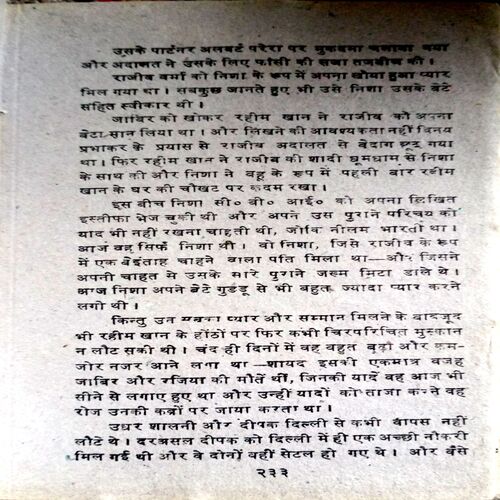 उसके पार्टनर अलबर्ट परेरा पर मुकदमा चलाया गया
और अदालत ने उसके लिए फांसी की सजा तजवीज की।
राजीव वर्मा को निशा के रूप में अपना खोया हुआ प्यार
मिल गया था। सबकुछ जानते हुए भी उसे निशा उसके बेटे
सहित स्वीकार थी।
जाबिर को खोकर रहीम खान ने राजीव को अपना
बेटा मान लिया था। और लिखने की आवश्यकता नहीं विनय
प्रभाकर के प्रयास से राजीव अदालत से बेदाग छूट गया
था। फिर रहीम खान ने राजीव की शादी धूमधाम से निशा
के साथ की और निशा ने बहू के रूप में पहली बार रहीम
खान के घर की चौखट पर कदम रखा।
इस बीच निशा सी० बी० आई० को अपना लिखित
इस्तीफा भेज चुकी थी और अपने उस पुराने परिचय को
याद भी नहीं रखना चाहती थी, जोकि नीलम भारती था।
आज वह सिर्फ निशा थी। वो निशा, जिसे राजीव के रूप
में एक बेइंताह चाहने वाला पति मिला था—और जिसने
अपनी चाहत से उसके सारे पुराने जख्म मिटा डाले थे।
आज निशा अपने बेटे गुडडू से भी बहुत ज्यादा प्यार करने
लगी थी।
किन्तु उन सबका प्यार और सम्मान मिलने के बावजूद
भी रहीम खान के होंठों पर फिर कभी चिरपरिचित मुस्कान
न लौट सकी थी। चंद ही दिनों में वह बहुत बूढ़ा और कम-
जोर नजर आने लगा था—शायद इसकी एकमात्र वजह
जाबिर और रजिया की मौतें थीं, जिनकी यादें वह आज भी
सीने से लगाए हुए था और उन्हीं यादों को ताजा करने वह
रोज उनकी कब्रों पर जाया करता था।
उधर शालनी और दीपक दिल्ली से कभी वापस नहीं
लौटे थे। दरअसल दीपक को दिल्ली में ही एक अच्छी नौकरी
मिल गई थी और वे दोनों वहीं सेटल हो गए थे। और वैसे
२३३